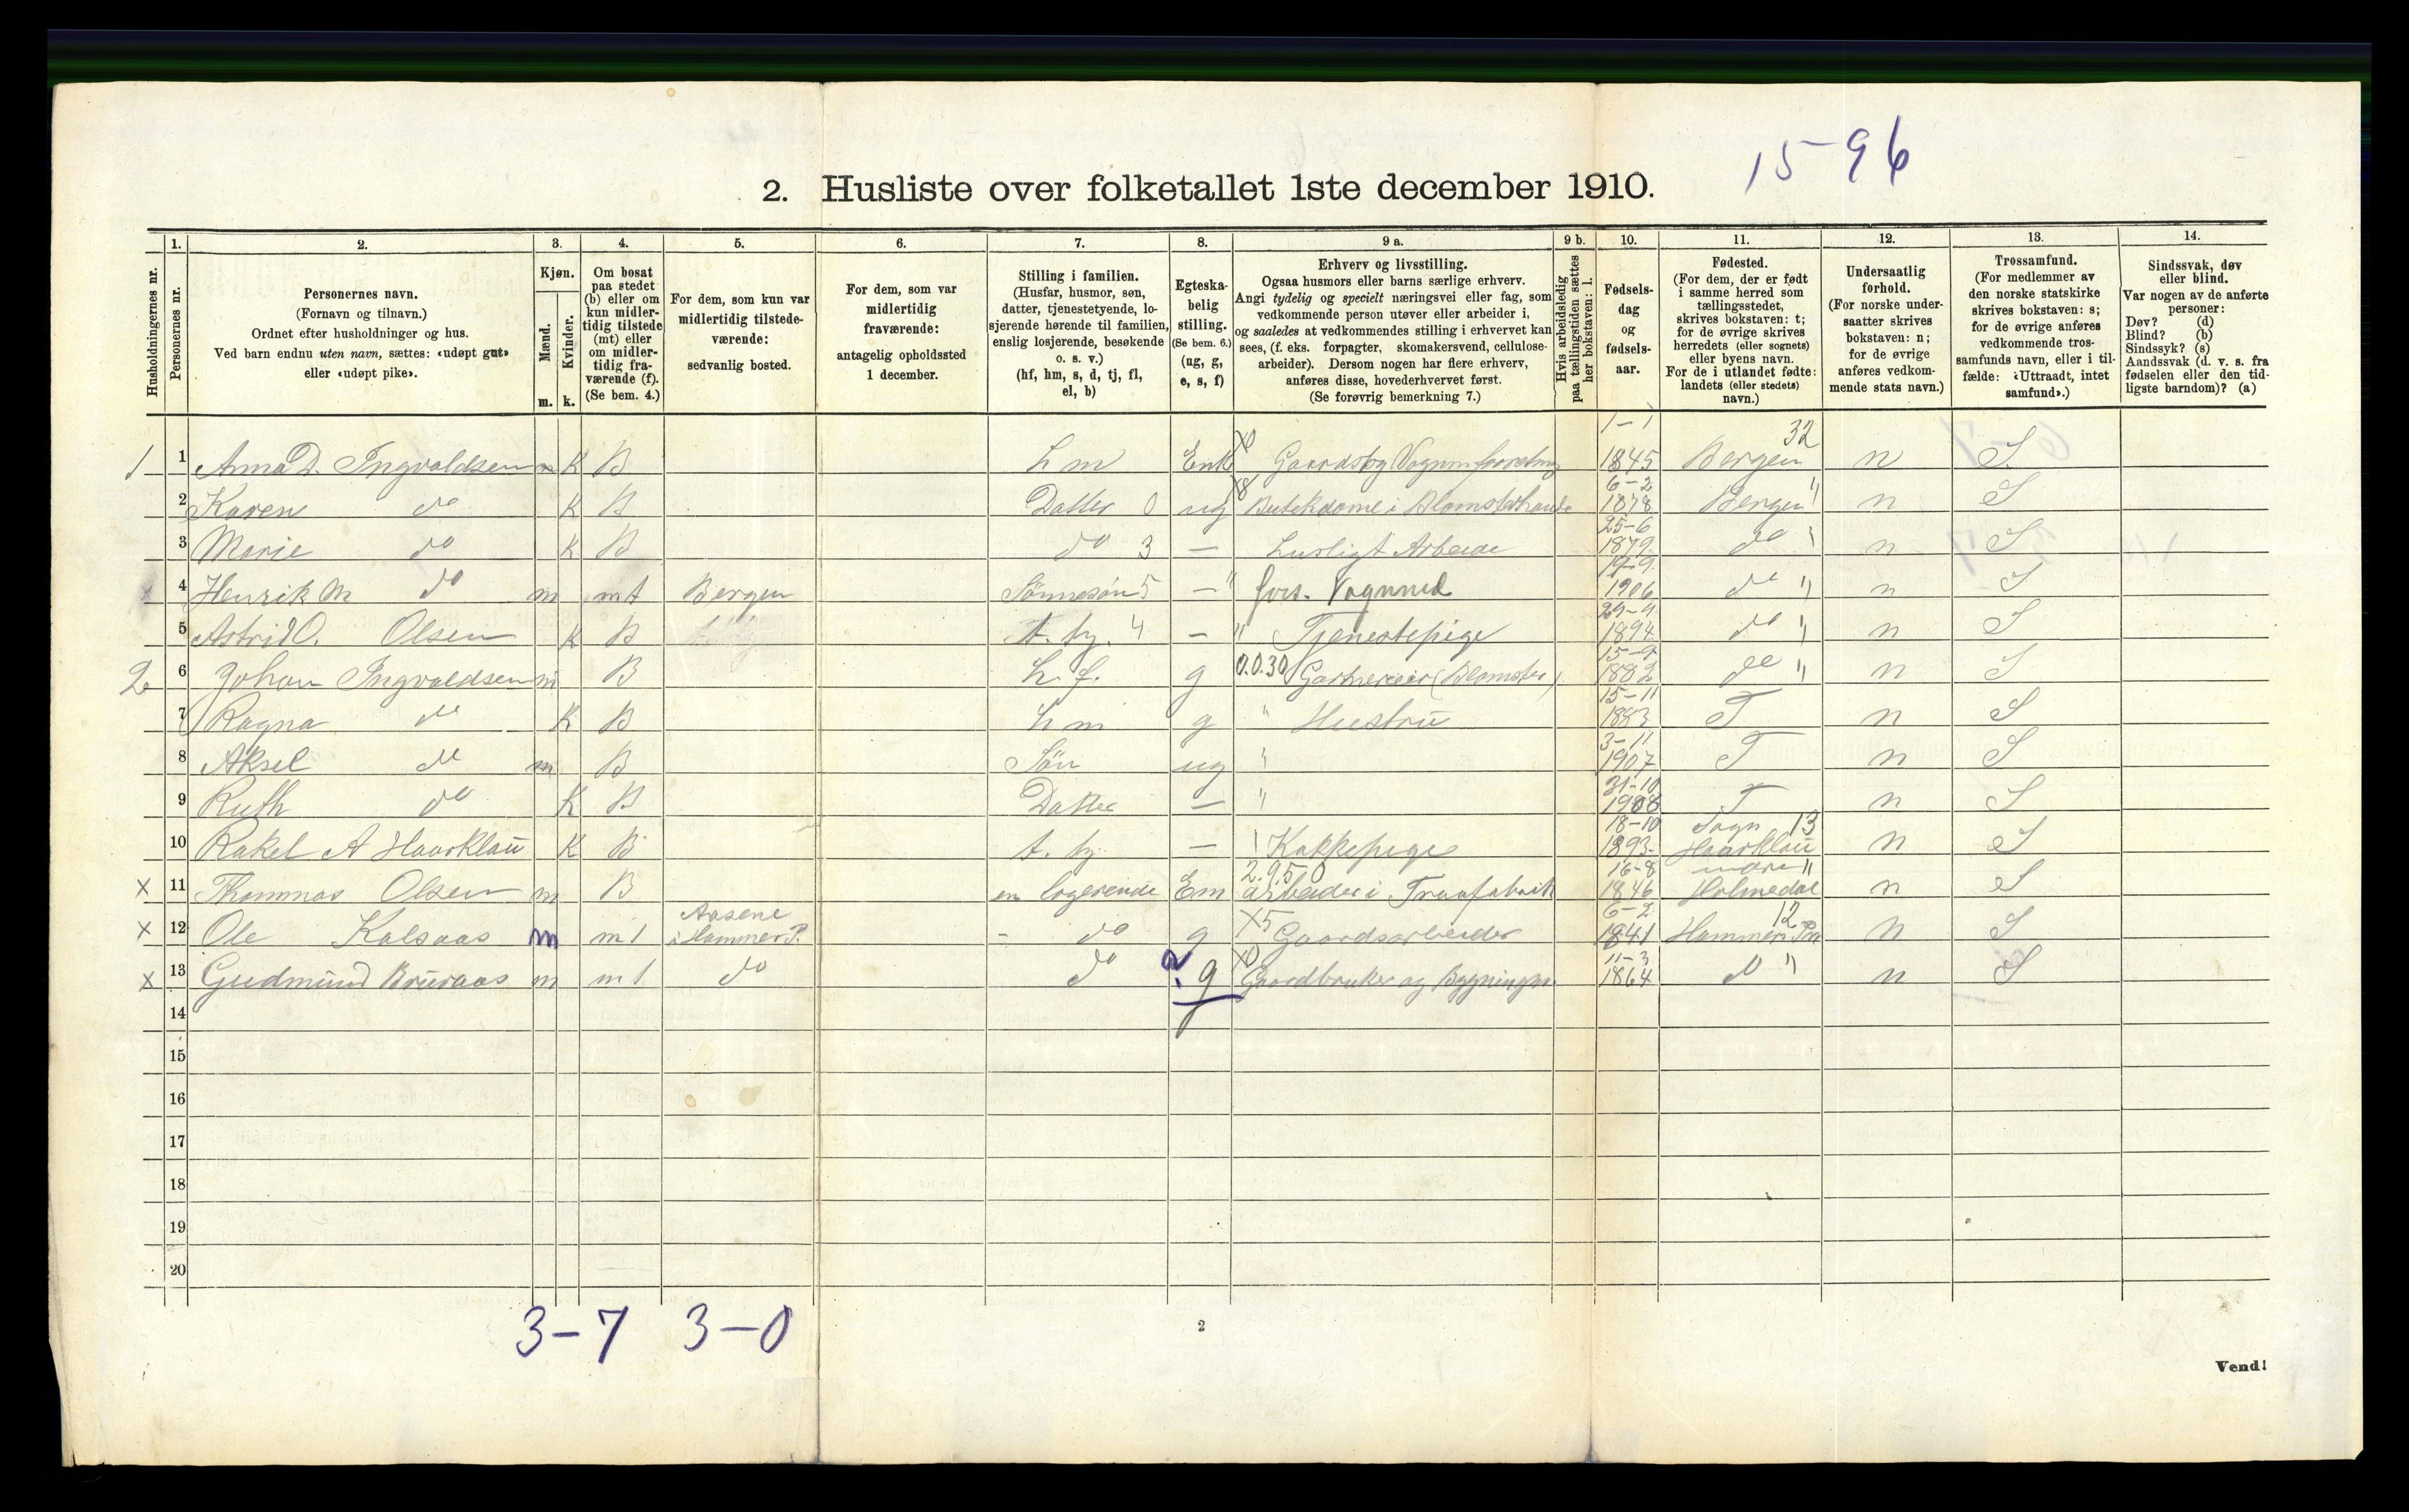 15-96
2. Husliste over folketallet 1ste december 1910.
Husholdningernes nr.
1. Personernes nr.
2. Personernes navn.
(Fornavn og tilnavn.)
Ordnet efter husholdninger og hus.
Ved barn endnu uten navn, sættes: «udøpt gut»
eller «udøpt pike».
3. Kjøn.
Mænd. m.
Kvinder. k.
4. Om bosat
paa stedet
(b) eller om
kun midler-
tidig tilstede
(mt) eller
om midler-
tidig fra-
værende (f).
(Se bem. 4.)
5. For dem, som kun var
midlertidig tilstede-
værende:
sedvanlig bosted.
6. For dem, som var
midlertidig
fraværende:
antagelig opholdssted
1 december.
7. Stilling i familien.
(Husfar, husmor, søn,
datter, tjenestetyende, lo-
sjerende hørende til familien,
enslig losjerende, besøkende
o. s. v.)
(hf, hm, s, d, tj, fl,
el, b)
8. Egteska-
belig
stilling.
(Se bem. 6.)
(ug, g,
e, s, f)
9 a. Erhverv og livsstilling.
Ogsaa husmors eller barns særlige erhverv.
Angi tydelig og specielt næringsvei eller fag, som
vedkommende person utøver eller arbeider i,
og saaledes at vedkommendes stilling i erhvervet kan
sees, (f. eks. forpagter, skomakersvend, cellulose-
arbeider). Dersom nogen har flere erhverv,
anføres disse, hovederhvervet først.
(Se forøvrig bemerkning 7.)
9 b. Hvis arbeidsledig
paa tællingstiden sættes
her bokstaven: l.
10. Fødsels-
dag
og
fødsels-
aar.
11. Fødested.
(For dem, der er født
i samme herred som
tællingsstedet,
skrives bokstaven: t;
for de øvrige skrives
herredets (eller sognets)
eller byens navn.
For de i utlandet fødte:
landets (eller stedets)
navn.)
12. Undersaatlig
forhold.
(For norske under-
saatter skrives
bokstaven: n;
for de øvrige
anføres vedkom-
mende stats navn.)
13. Trossamfund.
(For medlemmer av
den norske statskirke
skrives bokstaven: s;
for de øvrige anføres
vedkommende tros-
samfunds navn, eller i til-
fælde: «Uttraadt, intet
samfund».)
14. Sindssvak, døv
eller blind.
Var nogen av de anførte
personer:
Døv? (d)
Blind? (b)
Sindssyk? (s)
Aandssvak (d. v. s. fra
fødselen eller den tid-
ligste barndom)? (a)
1 1 Anna D. Ingvaldsen K B hm Enke Gaardsbr Vognmforretng 1-1 1845 Bergen 32 n S.
2 Karen do K B Datter 0 ug Butikdame i Blomsterhandel 6-2 1878 Bergen " n S
3 Marie do K B do 3 — Husligt Arbeide 25-6 1879 do " n S
4 Henrik M do m mt Bergen Sønnesøn 5 — " fors. Vognmd 19-9 1906 do " n S
5 Astrid O. Olsen K B t. ty. 4 — " Tjenestepige 29-9 1894 do " n S
2 6 Johan Ingvaldsen m B h. f. g 0.0.30 Gartnereier (Blomster) 15-9 1882 do " n S
7 Ragna do K B hm g " Hustru 15-11 1883 T n S
8 Aksel do m B Søn ug " 3-11 1907 T n S
9 Ruth do K B Datter — " 31-10 1908 T n S
10 Rakel A Haarklau K B t. ty — " Kokkepige 18-10 1893 Sogn 13 Haarklau n S
x 11 Thommas Olsen m B en logerende Em 2.95 0 arbeider i Traafabrik 16-8 1846 Holmedal n S
x 12 Ole Kalsaas m mt Aasene i Hammer P. - do g X5 Gaardsarbeider 6-2 1841 Hammer Pr 12 n S
x 13 Gudmund Bruraas m mt do do ? g X0 Gaardbruker og Bygningsm. 11-3 1864 do " n S
14
15
16
17
18
19
20
3-7 3-0
2
Vend!